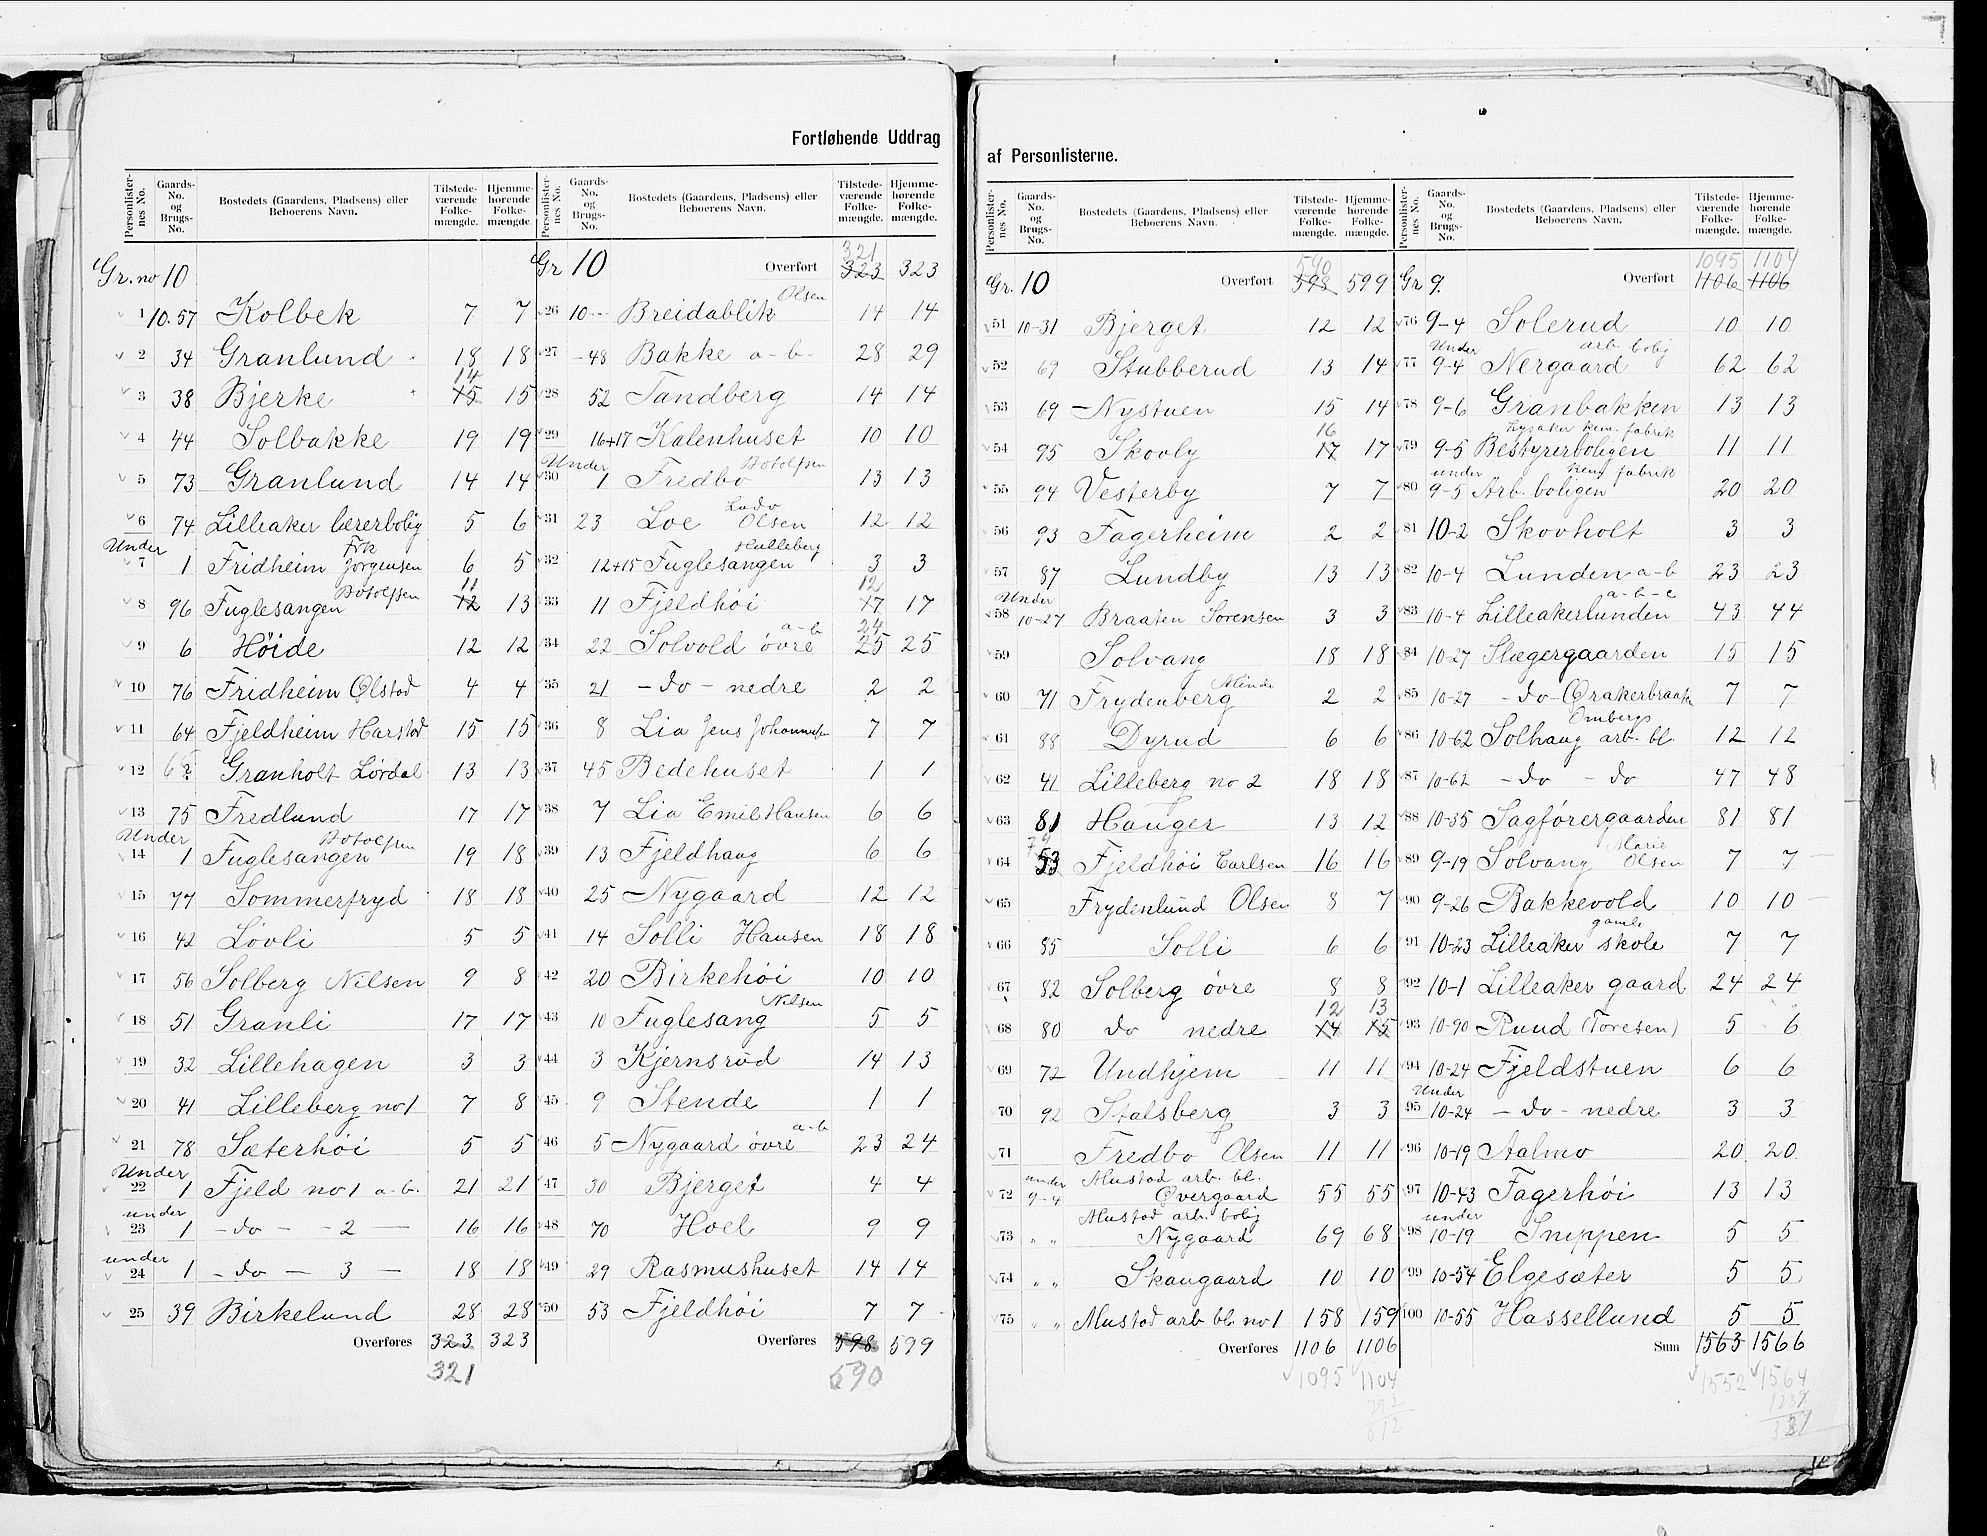 Fortløbende Uddrag
Personlister-nes No. Gaards-No. og Brugs-No. Bostedets (Gaardens, Pladsens) eller Beboerens Navn. Tilstede-værende Folke-mængde. Hjemme-hørende Folke-mængde.
Gr. no 10
1 10.57 Kolbek 7 7
2 34 Granlund 18 18
3 38 Bjerke 14 15 15
4 44 Solbakke 19 19
5 73 Granlund 14 14
6 74 Lilleaker lærerbolig 5 6
7 Under 1 Fridheim Frk Jørgensen 6 5
8 96 Fuglesangen Botolfsen 11 12 13
9 6 Höide 12 12
10 76 Fridheim Ølstad 4 4
11 64 Fjeldheim Harstad 15 15
12 Granholt Lørdal 13 13
13 75 Fredlund 17 17
14 Under 1 Fuglesangen Botolfsen 19 18
15 77 Sommerfryd 18 18
16 42 Løvli 5 5
17 56 Solberg Nilsen 9 8
18 51 Granli 17 17
19 32 Lillehagen 3 3
20 41 Lilleberg no 1 7 8
21 78 Sæterhöi 5 5
22 Under 1 Fjeld no 1 a-b. 21 21
23 under 1 - do - - 2 - 16 16
24 under 1 - do - 3 - 18 18
25 39 Birkelund 28 28
Overføres 323 323
321
Personlister-nes No. Gaards-No. og Brugs-No. Bostedets (Gaardens, Pladsens) eller Beboerens Navn. Tilstede-værende Folke-mængde. Hjemme-hørende Folke-mængde.
Gr 10 Overført 321 323 323
26 10 -- Breidablik Olsen 14 14
27 -48 Bakke a-b- 28 29
28 52 Tandberg 14 14
29 16+17 Kalenhuset 10 10
30 Under 1 Fredbo Botolfsen 13 13
31 23 Loe Ludv Olsen 12 12
32 12+15 Fuglesangen Halleberg 3 3
33 11 Fjeldhöi 12 17 17
34 22 Solvold øvre a-b 24 25 25
35 21 - do - nedre 2 2
36 8 Lia Jens Johannesen 7 7
37 45 Bedehuset 1 1
38 7 Lia Emil Hansen 6 6
39 13 Fjeldhaug 6 6
40 25 Nygaard 12 12
41 14 Solli Hansen 18 18
42 20 Birkehöi 10 10
43 10 Fuglesang Nilsen 5 5
44 3 Kjernsrud 14 13
45 9 Stende 1 1
46 5 Nygaard øvre a-b 23 24
47 30 Bjerget 4 4
48 70 Hoel 9 9
49 29 Rasmushuset 14 14
50 53 Fjeldhöi 7 7
Overføres 598 599
590
af Personlisterne.
Personlister-nes No. Gaards-No. og Brugs-No. Bostedets (Gaardens, Pladsens) eller Beboerens Navn. Tilstede-værende Folke-mængde. Hjemme-hørende Folke-mængde.
Gr. 10 Overført 590 598 599
51 10-31 Bjerget 12 12
52 69 Stubberud 13 14
53 69 Nystuen 15 14
54 95 Skovly 16 17 17
55 94 Vesterby 7 7
56 93 Fagerheim 2 2
57 87 Lundby 13 13
58 Under 10-27 Braaten Sørensen 3 3
59 Solvang 18 18
60 71 Frydenberg Minde 2 2
61 88 Dyrud 6 6
62 41 Lilleberg no 2 18 18
63 81 Hauger 13 12
64 53 Fjeldhöi Carlsen 16 16
65 Frydenlund Olsen 8 7
66 85 Solli 6 6
67 82 Solberg øvre 8 8
68 80 do nedre 12 14 13 15
69 72 Undhjem 11 11
70 92 Stalsberg 3 3
71 Fredbo Olsen 11 11
72 under 9-4 Mustad arb. bl. Øvergaard 55 55
73 " " Mustad arb. bolig Nygaard 69 68
74 " " Skaugaard 10 10
75 " " Mustad arb bl. no 1 158 159
Overføres 1106 1106
1095 1104
Personlister-nes No. Gaards-No. og Brugs-No. Bostedets (Gaardens, Pladsens) eller Beboerens Navn. Tilstede-værende Folke-mængde. Hjemme-hørende Folke-mængde.
Gr 9. Overført 1095 1106 1104 1106
76 9-4 Solerud 10 10
77 Under 9-4 Nergaard arb. bolig 62 62
78 9-6 Granbakken 13 13
79 9-5 Lysaker kem. fabrik Bestyrerboligen 11 11
80 under 9-5 Arb. boligen kem fabrik 20 20
81 10-2 Skovholt 3 3
82 10-4 Lunden a-b 23 23
83 10-4 Lilleakerlunden a-b-c 43 44
84 10-27 Slagergaarden 15 15
85 10-27 - do - Ørakerbraaten 7 7
86 10-62 Solhaug Ombergs arb. bl. 12 12
87 10-62 - do - do 47 48
88 10-35 Sagførergaarden 81 81
89 9-19 Solvang Marie Olsen 7 7
90 9-26 Bakkevold 10 10
91 10-23 Lilleaker gamle skole 7 7
92 10-1 Lilleaker gaard 24 24
93 10-90 Ruud (Toresen) 5 6
94 10-24 Fjeldstuen 6 6
95 Under 10-24 - do - nedre 3 3
96 10-19 Aalmo 20 20
97 10-43 Fagerhöi 13 13
98 under 10-19 Snippen 5 5
99 10-54 Elgesæter 5 5
100 10-55 Hassellund 5 5
Sum 1563 1566
1552 1564